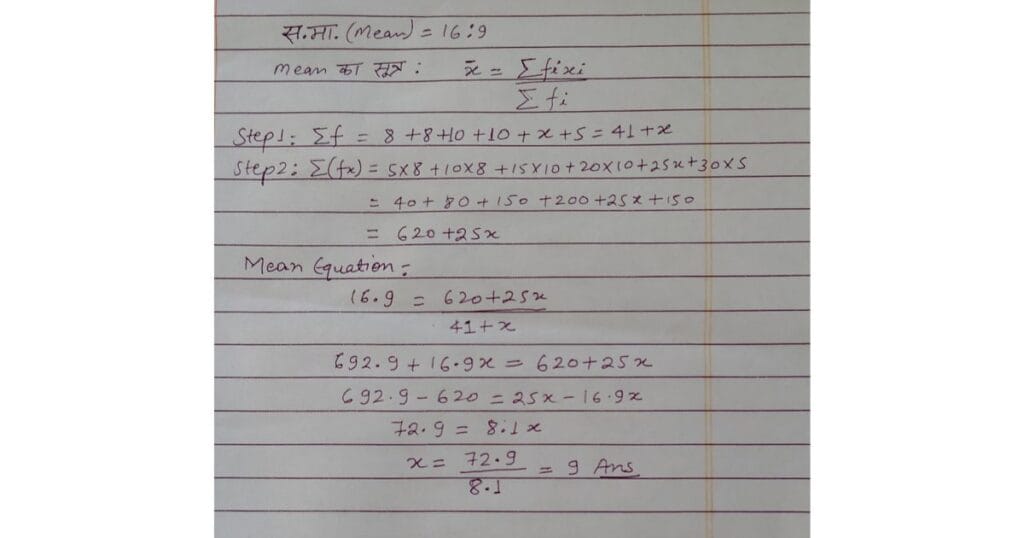 स.मा. (Mean) = 16.9
mean का सूत्र : x̄ = Σfixi / Σfi
Step1: Σf = 8 +8+10 +10 + x +5 = 41+x
Step2: Σ(fx) = 5x8 +10x8 +15x10+20x10+25x+30x5
= 40+ 80 + 150 +200 +25x +150
= 620 +25x
Mean Equation:-
16.9 = 620+25x / 41+x
692.9 + 16.9x = 620+25x
692.9 - 620 = 25x - 16.9x
72.9 = 8.1x
x = 72.9 / 8.1 = 9 Ans